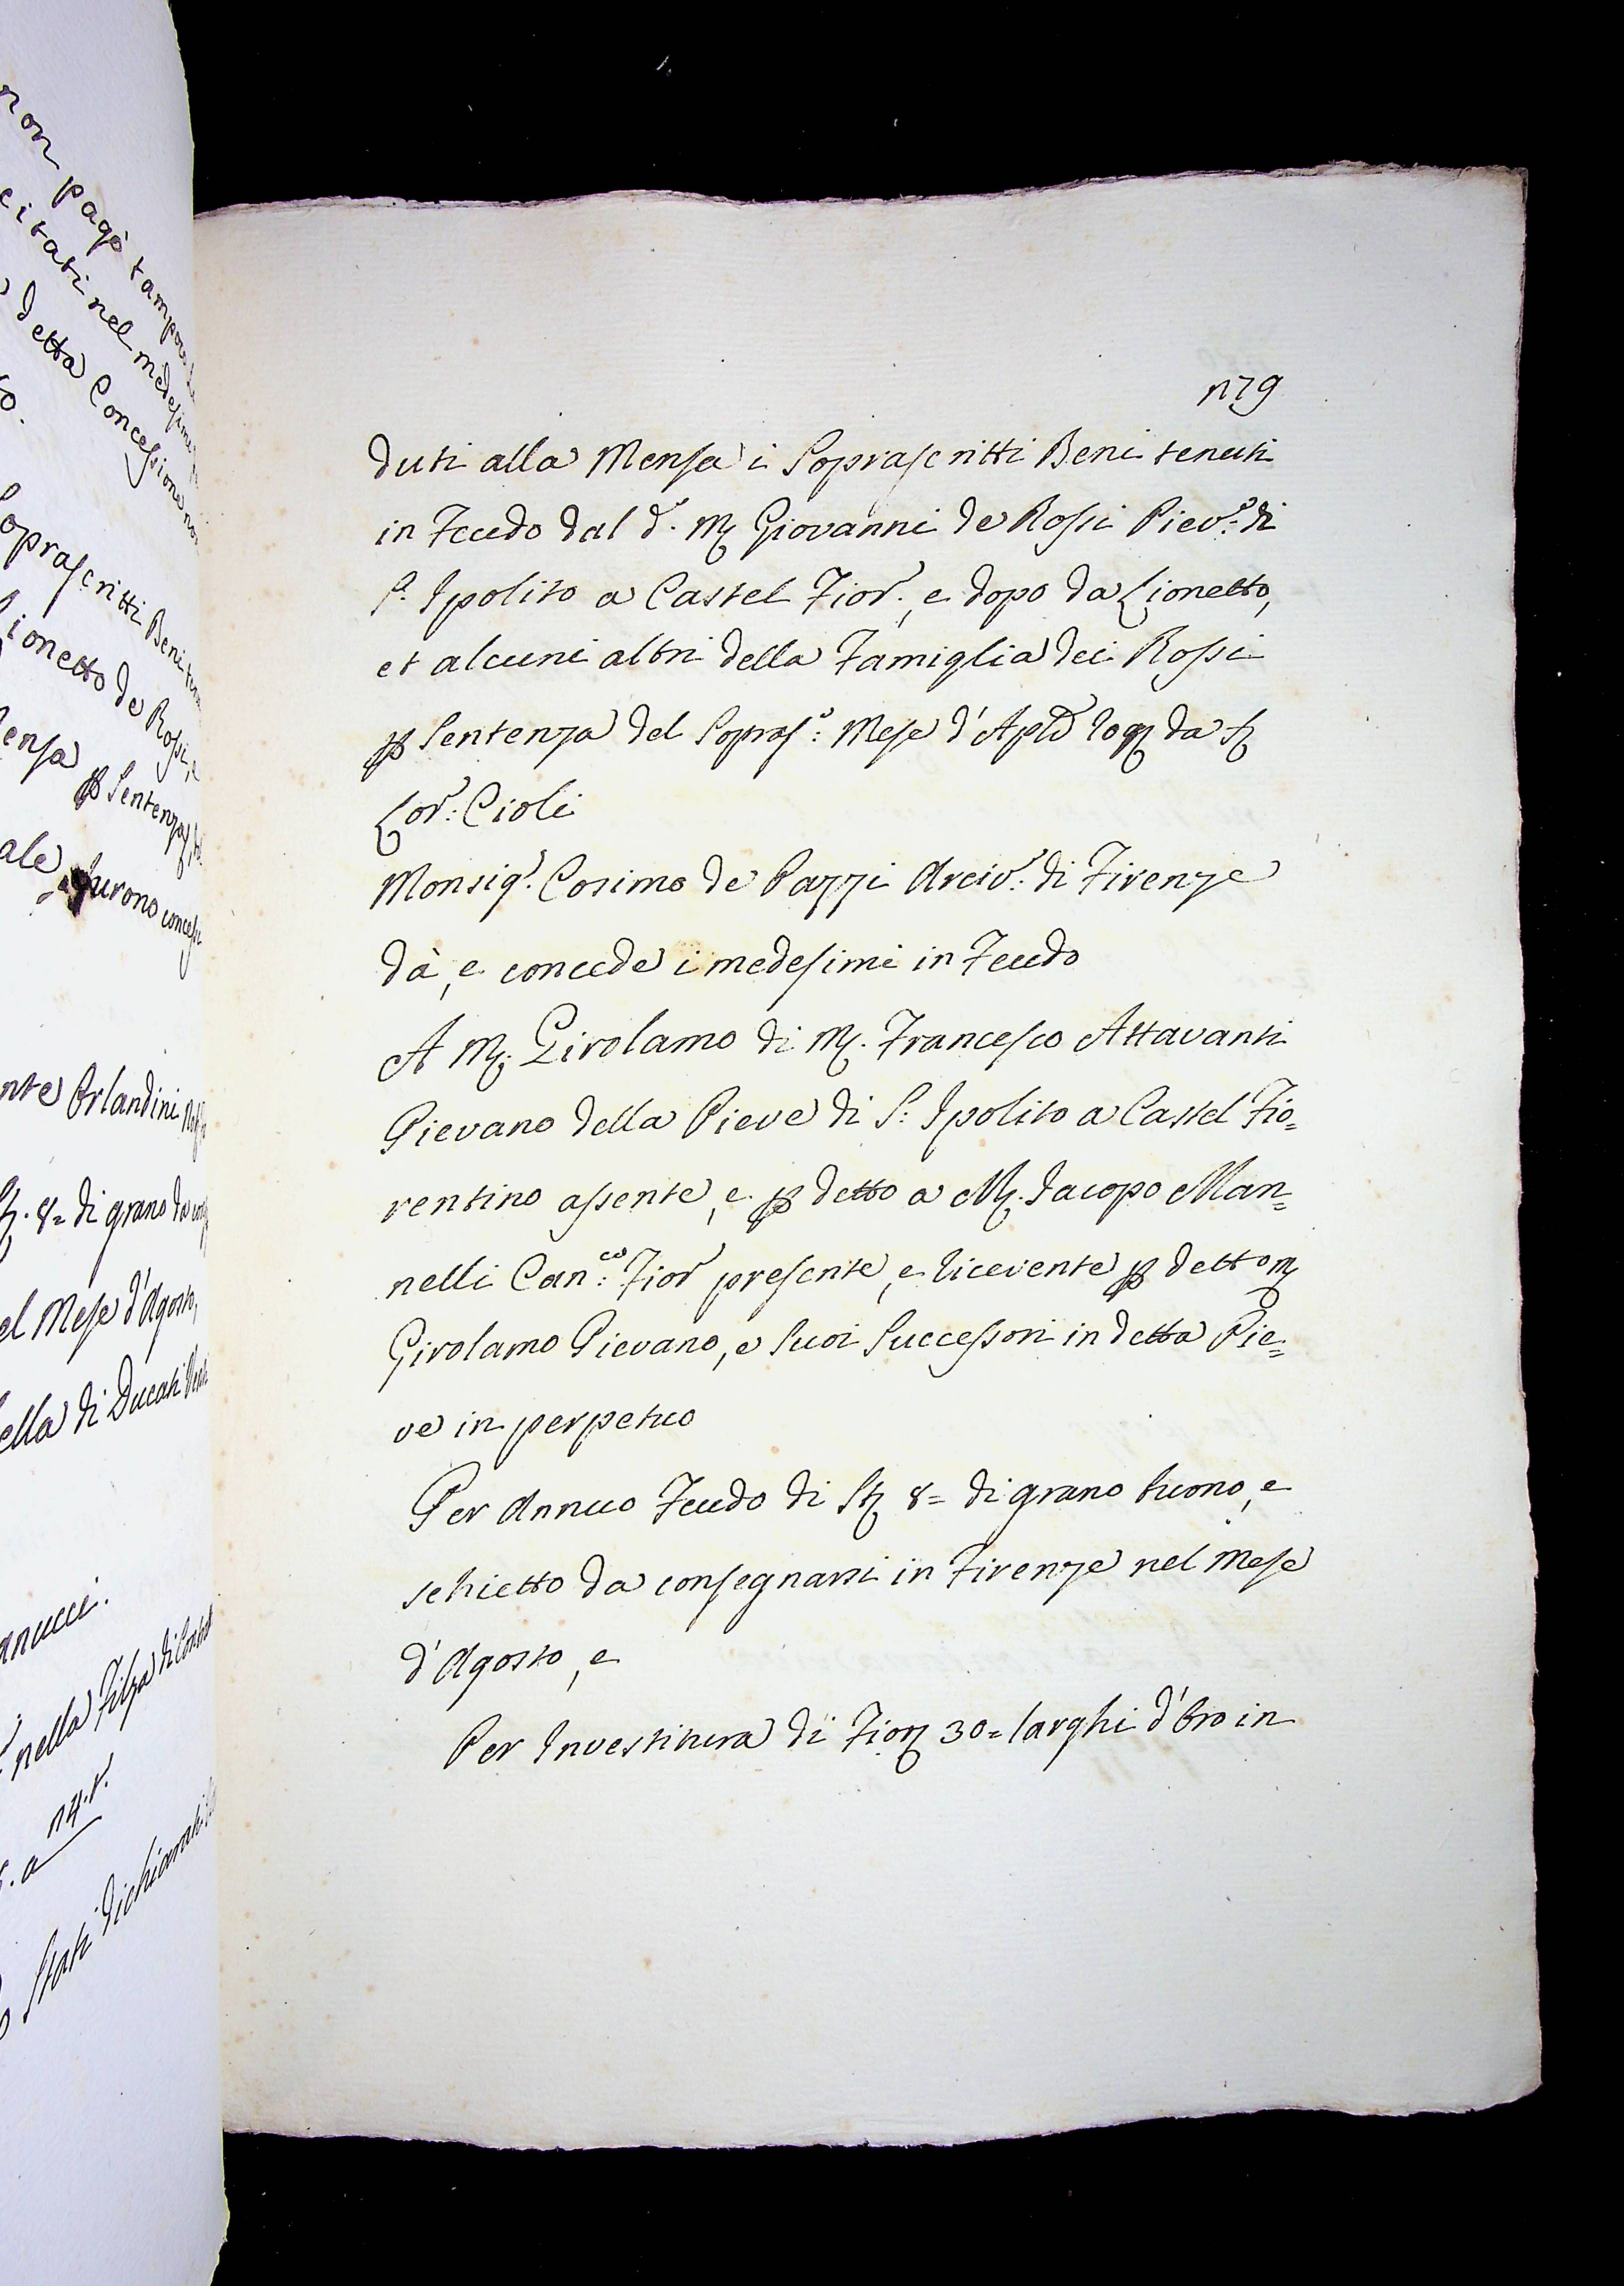 non pagò tampoco
citati nel medesimo
detta Concessione non
o.
Soprascritti Beni
Lionetto de Rossi, e
Mensa
ꝑ Sentenza
ale, furono concessi
nte Orlandini
8= di grano da
el Mese d'Agosto,
ella di Ducati
anucci.
nella Filza di
a n4.r.
Stati dichiarati
n79
duti alla Mensa i Soprascritti Beni tenuti
in Feudo dal d.° M. Giovanni de Rossi Piev.° di
S. Ipolito a Castel Fior.°, e dopo da Lionetto,
et alcuni altri della Famiglia dei Rossi
ꝑ Sentenza del Sopras.°: Mese d'Aple rog. da S.
Lor.°: Cioli
Monsig.r Cosimo de Pazzi Arciv.°: di Firenze
dà, e concede i medesimi in Feudo
A M. Girolamo di M. Francesco Attavanti
Pievano della Pieve di S: Ipolito a Castel Fio=
rentino assente, e ꝑ detto a M. Jacopo Man=
nelli Can.co: Fior.° presente, e ricevente ꝑ detto M.
Girolamo Pievano, e suoi Successori in detta Pie=
ve in perpetuo
Per Annuo Feudo di St. 8= di grano buono, e
schietto da consegnarsi in Firenze nel Mese
d'Agosto, e
Per Investitura di Fior. 30= larghi d'Oro in